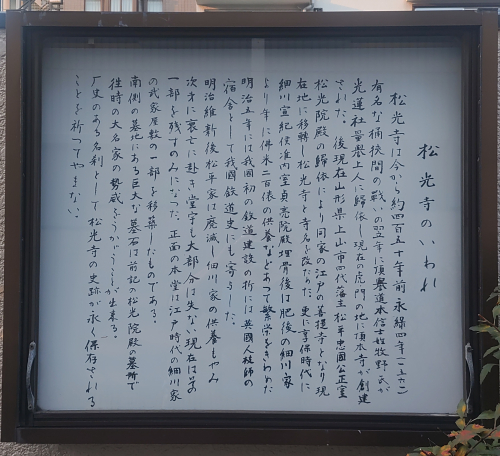 松光寺のいわれ
松光寺は今から約四百五十年前永緑四年(一五六一)
有名な桶狭間の戦いの翌年に頂譽道本信士姓牧野氏が
光蓮社量譽上人に帰依し現在の虎門の地に頂本寺が創建
された。後現在山形県上山市四代藩主松平忠國公正室
松光院殿の歸依により同家の江戸の菩提寺となり現
在地に移轉し松光寺と寺名も改めた。更に享保時代に
細川宣紀侯准内室貞亮院殿埋骨後は肥後の細川家
より年に供米二百俵の供養などあって繁栄をきわめた
明治五年には我国初の鉄道建設の折には英國人技師の
宿舎として我國鉄道史にも寄与した。
明治維新後松平家は廃滅し細川家の供養もやみ
次才に衰亡に赴き堂宇も大部分は失ない現在はその
一部を残すのみになった。正面の本堂は江戸時代の細川家
の武家屋敷の一部を移築したものである。
南側の墓地にある巨大な墓石は前記の松光院殿の墓所で
往時の大名家の勢威をうかがうことが出来る。
歴史のある名刹として松光寺の史跡が永く保存される
ことを祈ってやまない。